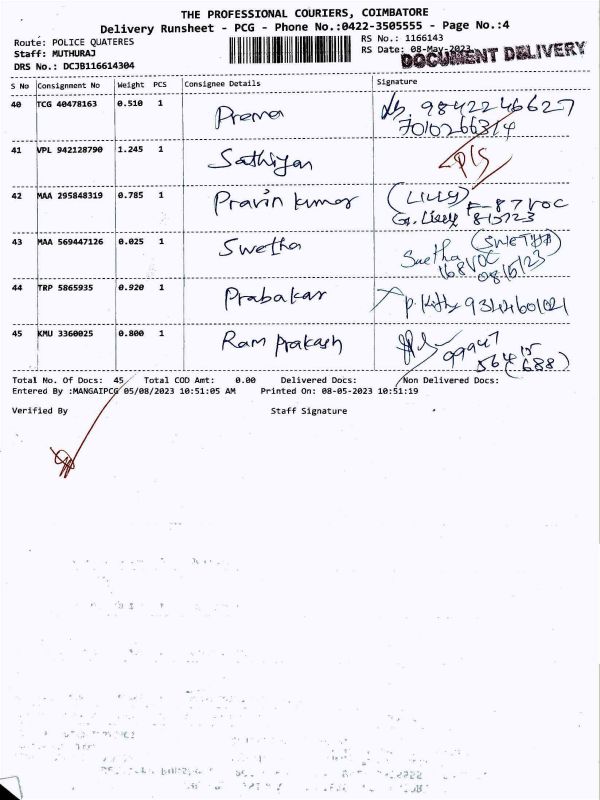 THE PROFESSIONAL COURIERS, COIMBATORE
Delivery Runsheet - PCG - Phone No.:0422-3505555 - Page No.:4
Route: POLICE QUATERES
Staff: MUTHURAJ
DRS No.: DCJB116614304
RS No.: 1166143
RS Date: 08-May-2023
DOCUMENT DELIVERY
S No Consignment No Weight PCS Consignee Details Signature
40 TCG 40478163 0.510 1 Prema 9842246627
7010266314
41 VPL 942128790 1.245 1 Sathiyan
42 MAA 295848319 0.785 1 Pravin kumar (LILLY) F-87 VOC
8/5/23
43 MAA 569447126 0.025 1 Swetha Swetha (SWETHA)
168 VOC
08/5/23
44 TRP 5865935 0.920 1 Prabakar
45 KMU 3360025 0.800 1 Ram Prakash 99947
564 15
(688)
Total No. Of Docs: 45 Total COD Amt: 0.00 Delivered Docs: Non Delivered Docs:
Entered By :MANGAIPCG 05/08/2023 10:51:05 AM Printed On: 08-05-2023 10:51:19
Verified By Staff Signature